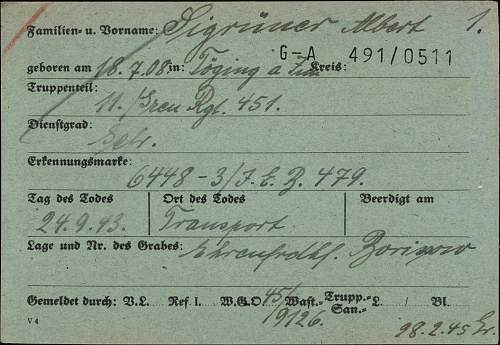 Familien- u. Vorname: Sigrüner Albert 1.
G-A 491/0511
geboren am 18.7.08 in: Töging a. Inn Kreis:
Truppenteil:
11./Gren Rgt. 451.
Dienstgrad:
Gefr.
Erkennungsmarke:
6448-3/J.E.B. 479.
Tag des Todes Ort des Todes Beerdigt am
24.9.43. Transport
Lage und Nr. des Grabes: Ehrenfrdhf. Borissow
Gemeldet durch: V.L. Ref I. W.G.O. 45/9126. Wast.- Trupp.- San.- L. Bl.
V 4
98.2.45